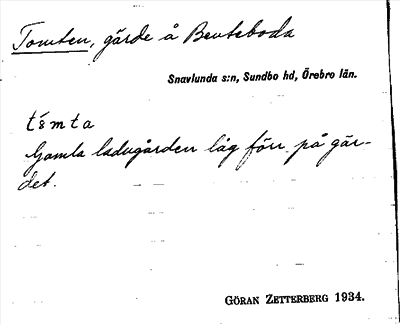 Tomten, gärde å Benteboda
Snavlunda s:n, Sundbo hd, Örebro län.
Gamla ladugården låg förr på gär-
det.
GÖRAN ZETTERBERG 1934.